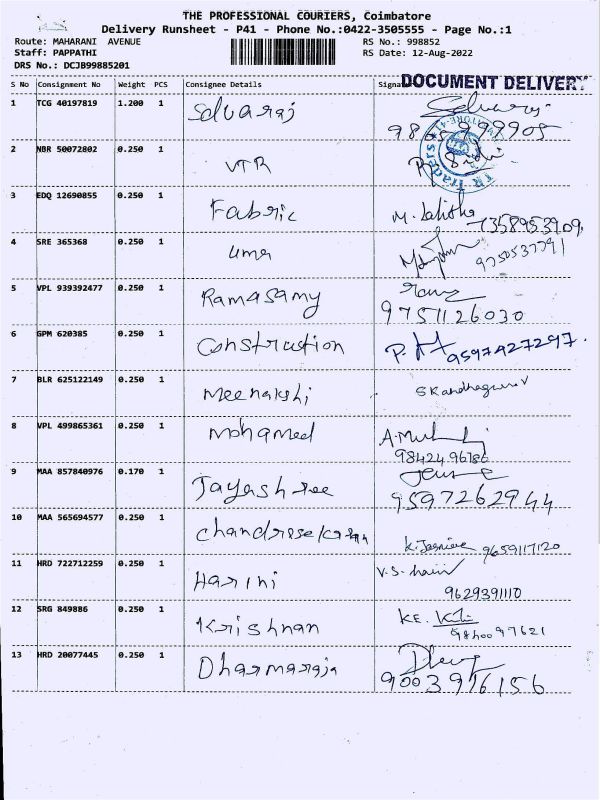 THE PROFESSIONAL COURIERS, Coimbatore
Delivery Runsheet - P41 - Phone No.:0422-3505555 - Page No.:1
Route: MAHARANI AVENUE RS No.: 998852
Staff: PAPPATHI RS Date: 12-Aug-2022
DRS No.: DCJB99885201
DOCUMENT DELIVERY
S No Consignment No Weight PCS Consignee Details
1 TCG 40197819 1.200 1 Selvaraj
2 NBR 50072802 0.250 1 VTR
3 EDQ 12690855 0.250 1 Fabric M. Lalitha
7358953909
4 SRE 365368 0.250 1 uma
9750537791
5 VPL 939392477 0.250 1 Ramasamy
9751126030
6 GPM 620385 0.250 1 Construction 9597427297
7 BLR 625122149 0.250 1 Meenakshi
8 VPL 499865361 0.250 1 Mohamed
98424 96786
9 MAA 857840976 0.170 1 Jayashree
9597262944
10 MAA 565694577 0.250 1 Chandrasekaran
9659117120
11 HRD 722712259 0.250 1 Harini V.S.
9629391110
12 SRG 849886 0.250 1 Krishnan KE.
13 HRD 20077445 0.250 1 Dharmaraja
9003916156